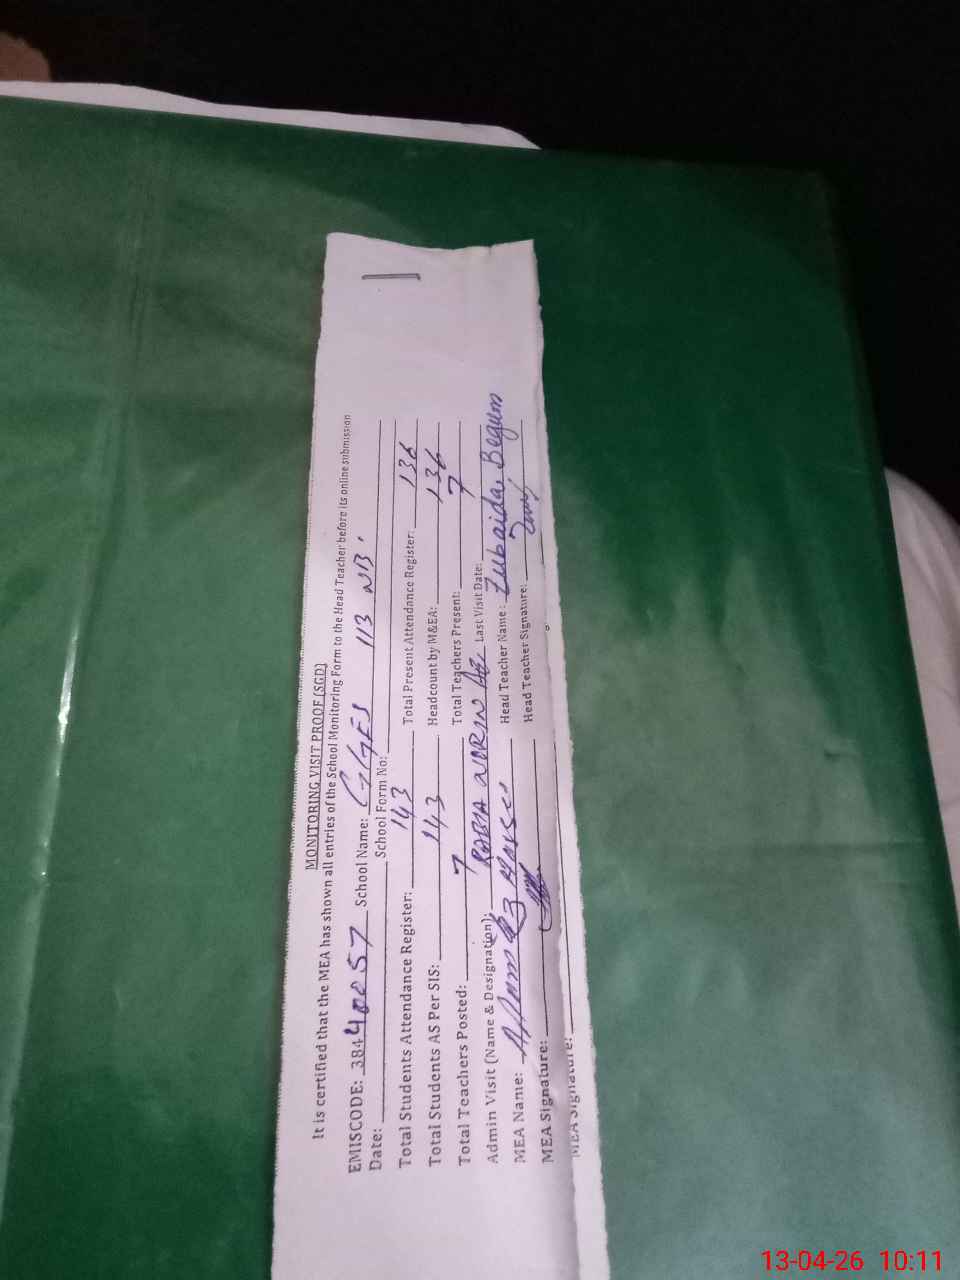 MONITORING VISIT PROOF (SGD)
It is certified that the MEA has shown all entries of the School Monitoring Form to the Head Teacher before its online submission
EMISCODE: 38440057 School Name: GGES 113 NB.
Date: School Form No:
Total Students Attendance Register: 143 Total Present Attendance Register: 136
Total Students AS Per SIS: 143 Headcount by M&EA: 136
Total Teachers Posted: 7 Total Teachers Present: 7
Admin Visit (Name & Designation): RABIA NORIN Last Visit Date:
MEA Name: Head Teacher Name: Zubaida Begum
MEA Signature: Head Teacher Signature:
MEA Signature:
13-04-26 10:11